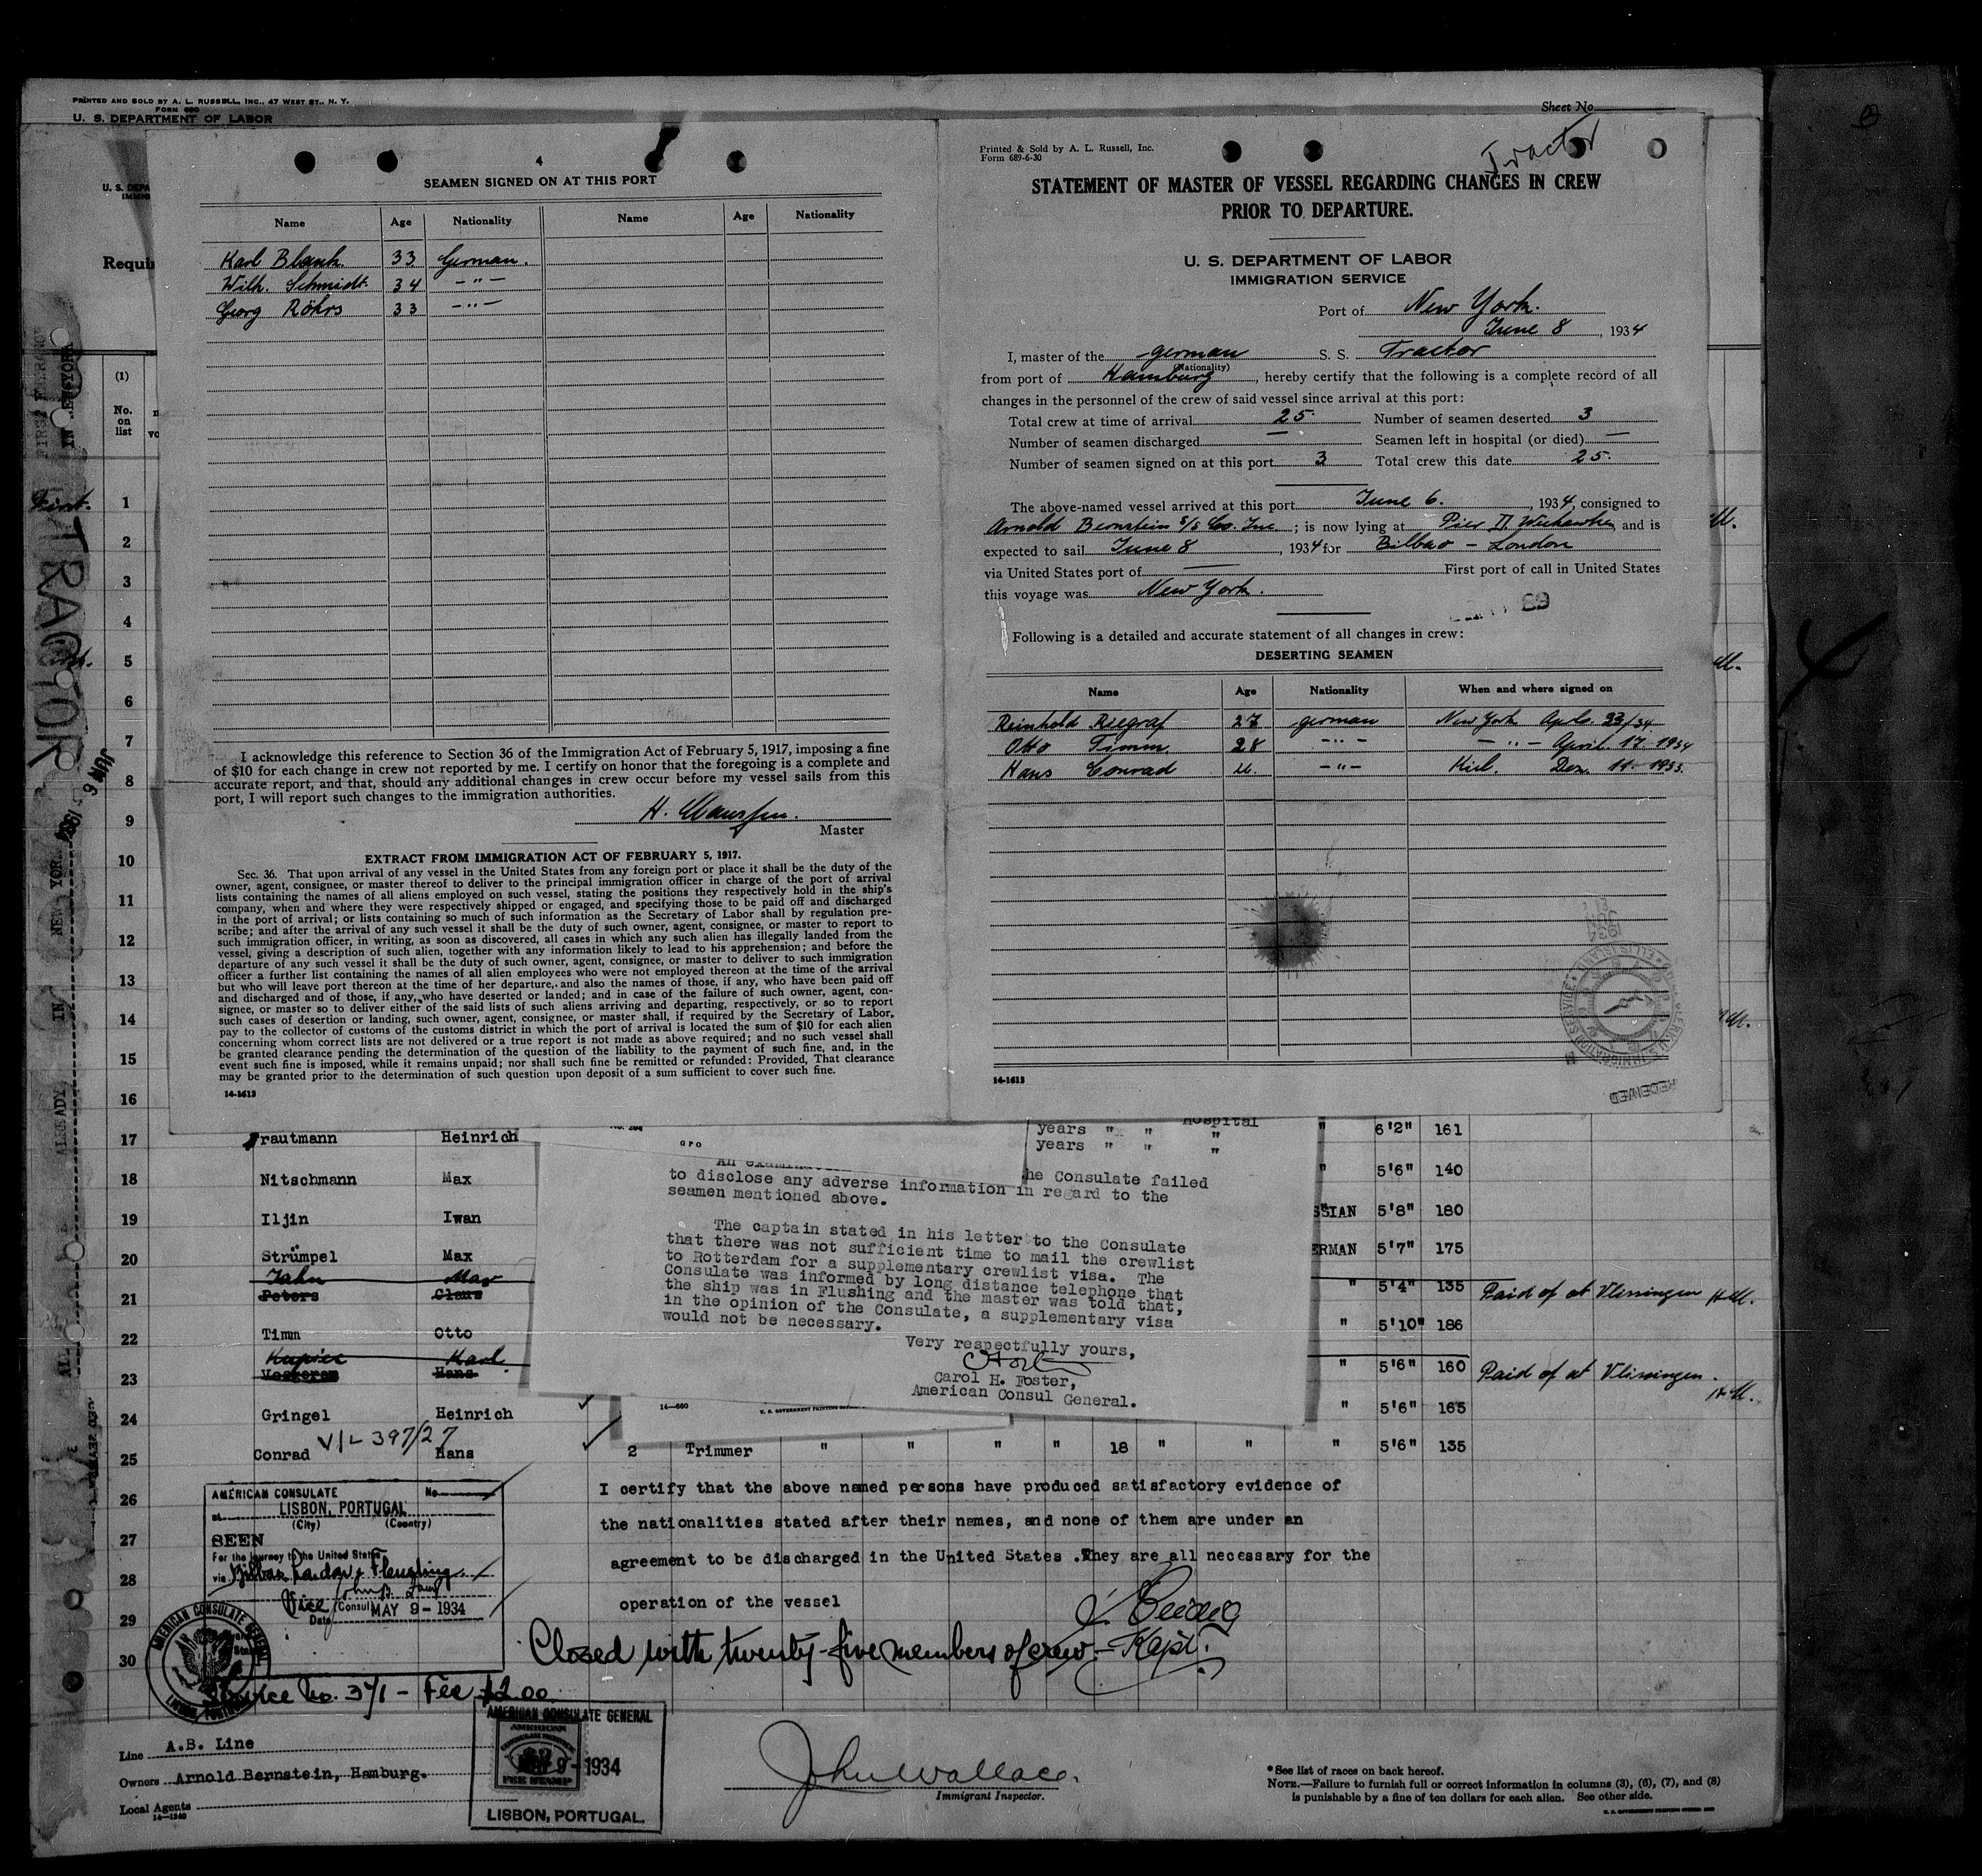 PRINTED AND SOLD BY A. L. RUSSELL, INC., 47 WEST ST., N. Y.
FORM 680
U. S. DEPARTMENT OF LABOR
Sheet No.
4
SEAMEN SIGNED ON AT THIS PORT
Name Age Nationality Name Age Nationality
Karl Blank 33 German.
Wilh. Schmidt 34 -"-
Georg Röhrs 33 -"-
I acknowledge this reference to Section 36 of the Immigration Act of February 5, 1917, imposing a fine
of $10 for each change in crew not reported by me. I certify on honor that the foregoing is a complete and
accurate report, and that, should any additional changes in crew occur before my vessel sails from this
port, I will report such changes to the immigration authorities.
H.
Master
EXTRACT FROM IMMIGRATION ACT OF FEBRUARY 5, 1917.
Sec. 36. That upon arrival of any vessel in the United States from any foreign port or place it shall be the duty of the
owner, agent, consignee, or master thereof to deliver to the principal immigration officer in charge of the port of arrival
lists containing the names of all aliens employed on such vessel, stating the positions they respectively hold in the ship's
company, when and where they were respectively shipped or engaged, and specifying those to be paid off and discharged
in the port of arrival; or lists containing so much of such information as the Secretary of Labor shall by regulation pre-
scribe; and after the arrival of any such vessel it shall be the duty of such owner, agent, consignee, or master to report to
such immigration officer, in writing, as soon as discovered, all cases in which any such alien has illegally landed from the
vessel, giving a description of such alien, together with any information likely to lead to his apprehension; and before the
departure of any such vessel it shall be the duty of such owner, agent, consignee, or master to deliver to such immigration
officer a further list containing the names of all alien employees who were not employed thereon at the time of the arrival
but who will leave port thereon at the time of her departure, and also the names of those, if any, who have been paid off
and discharged and of those, if any, who have deserted or landed; and in case of the failure of such owner, agent, con-
signee, or master so to deliver either of the said lists of such aliens arriving and departing, respectively, or so to report
such cases of desertion or landing, such owner, agent, consignee, or master shall, if required by the Secretary of Labor,
pay to the collector of customs of the customs district in which the port of arrival is located the sum of $10 for each alien
concerning whom correct lists are not delivered or a true report is not made as above required; and no such vessel shall
be granted clearance pending the determination of the question of the liability to the payment of such fine, and, in the
event such fine is imposed, while it remains unpaid; nor shall such fine be remitted or refunded: Provided, That clearance
may be granted prior to the determination of such question upon deposit of a sum sufficient to cover such fine.
14-1613
Printed & Sold by A. L. Russell, Inc.
Form 689-6-30
Tractor
STATEMENT OF MASTER OF VESSEL REGARDING CHANGES IN CREW
PRIOR TO DEPARTURE.
U. S. DEPARTMENT OF LABOR
IMMIGRATION SERVICE
Port of New York.
June 8, 1934
I, master of the german S. S. Tractor
(Nationality)
from port of Hamburg, hereby certify that the following is a complete record of all
changes in the personnel of the crew of said vessel since arrival at this port:
Total crew at time of arrival 25. Number of seamen deserted 3
Number of seamen discharged — Seamen left in hospital (or died) —
Number of seamen signed on at this port 3 Total crew this date 25.
The above-named vessel arrived at this port June 6., 1934, consigned to
Arnold Bernstein S/S Co. Inc; is now lying at Pier II Weehawken and is
expected to sail June 8, 1934 for Bilbao - London
via United States port of — First port of call in United States
this voyage was New York.
Following is a detailed and accurate statement of all changes in crew:
DESERTING SEAMEN
Name Age Nationality When and where signed on
Reinhold Riegraf 27 german New York Apl. 23/34
Otto Timm. 28 -"- -"- April 17 1934
Hans Conrad -"- Kiel. Dez. 11 1933.
RECEIVED
14-1613
Requi
(1)
No. on list
TRACTOR
NEW YORK
JUN 6 1934
1
2
3
4
5
6
7
8
9
10
11
12
13
14
15
16
17 rautmann Heinrich years " " Hospital " 6'2" 161
years " " "
18 Nitschmann Max " 5'6" 140
19 Iljin Iwan SSIAN 5'8" 180
20 Strümpel Max ERMAN 5'7" 175
Jahn Max
21 Peters Claus " 5'4" 135 Paid of at Vlissingen H.M.
22 Timm Otto " 5'10" 186
Karl
23 Hans " 5'6" 160 Paid of at Vlissingen. H.M.
24 Gringel Heinrich " 5'6" 165
V/L 397/27
25 Conrad Hans 2 Trimmer " " " " 18 " " " 5'6" 135
he Consulate failed
to disclose any adverse information in regard to the
seamen mentioned above.
The captain stated in his letter to the Consulate
that there was not sufficient time to mail the crewlist
to Rotterdam for a supplementary crewlist visa. The
Consulate was informed by long distance telephone that
the ship was in Flushing and the master was told that,
in the opinion of the Consulate, a supplementary visa
would not be necessary.
Very respectfully yours,
Carol H. Foster,
American Consul General.
14—680
26
27
28
29
30
I certify that the above named persons have produced satisfactory evidence of
the nationalities stated after their names, and none of them are under an
agreement to be discharged in the United States .They are all necessary for the
operation of the vessel
Kapt.
Closed with twenty-five members of crew.
AMERICAN CONSULATE No.
at LISBON, PORTUGAL
(City) (Country)
SEEN
For the journey to the United States
via Bilbao, London & Flushing
Vice Consul
Date MAY 9 - 1934
AMERICAN CONSULATE GENERAL LISBON, PORTUGAL
Service No. 371 - Fee $2.00
AMERICAN CONSULATE GENERAL
AMERICAN CONSULAR SERVICE
$2
FEE STAMP
MAY 9 - 1934
LISBON, PORTUGAL.
Line A.B. Line
Owners Arnold Bernstein, Hamburg.
Local Agents
14—1240
John Wallace.
Immigrant Inspector.
*See list of races on back hereof.
NOTE.—Failure to furnish full or correct information in columns (3), (6), (7), and (8)
is punishable by a fine of ten dollars for each alien. See other side.